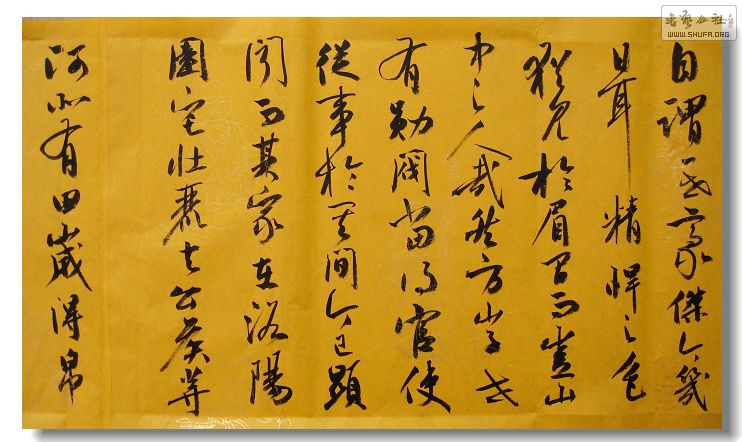 自謂一世豪傑今幾
日耳精悍之色
猶見於眉間而豈山
中之人哉然方山子世
有勛閥當得官使
從事於其間今已顯
聞而其家在洛陽
園宅壯麗與公侯等
河北有田歲得帛
书艺公社
WWW.SHUFA.ORG